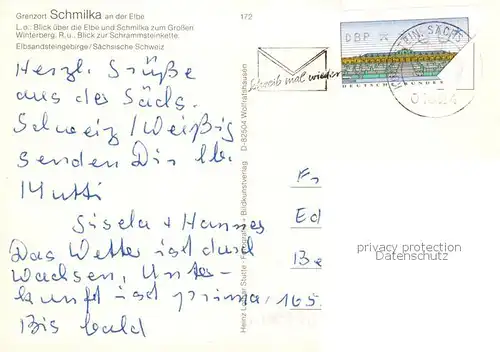 Grenzort Schmilka an der Elbe
L. o.: Blick über die Elbe und Schmilka zum Großen
Winterberg. R. u.: Blick zur Schrammsteinkette.
Elbsandsteingebirge/Sächsische Schweiz
172
Herzl. Grüße
aus der Sächs.
Schweiz / Weißig
senden Dir lb.
Mutti
Gisela + Hannes
Das Wetter ist durch
wachsen, Unter-
kunft ist prima, 165.
Bis bald
Heinz Lothar Stutte - Fotografie + Bildkunstverlag D-82504 Wolfratshausen
Schreib mal wieder
DBP
DEUTSCHE BUNDES
SÄCHS
Fr
Ed
Be
privacy protection
Datenschutz